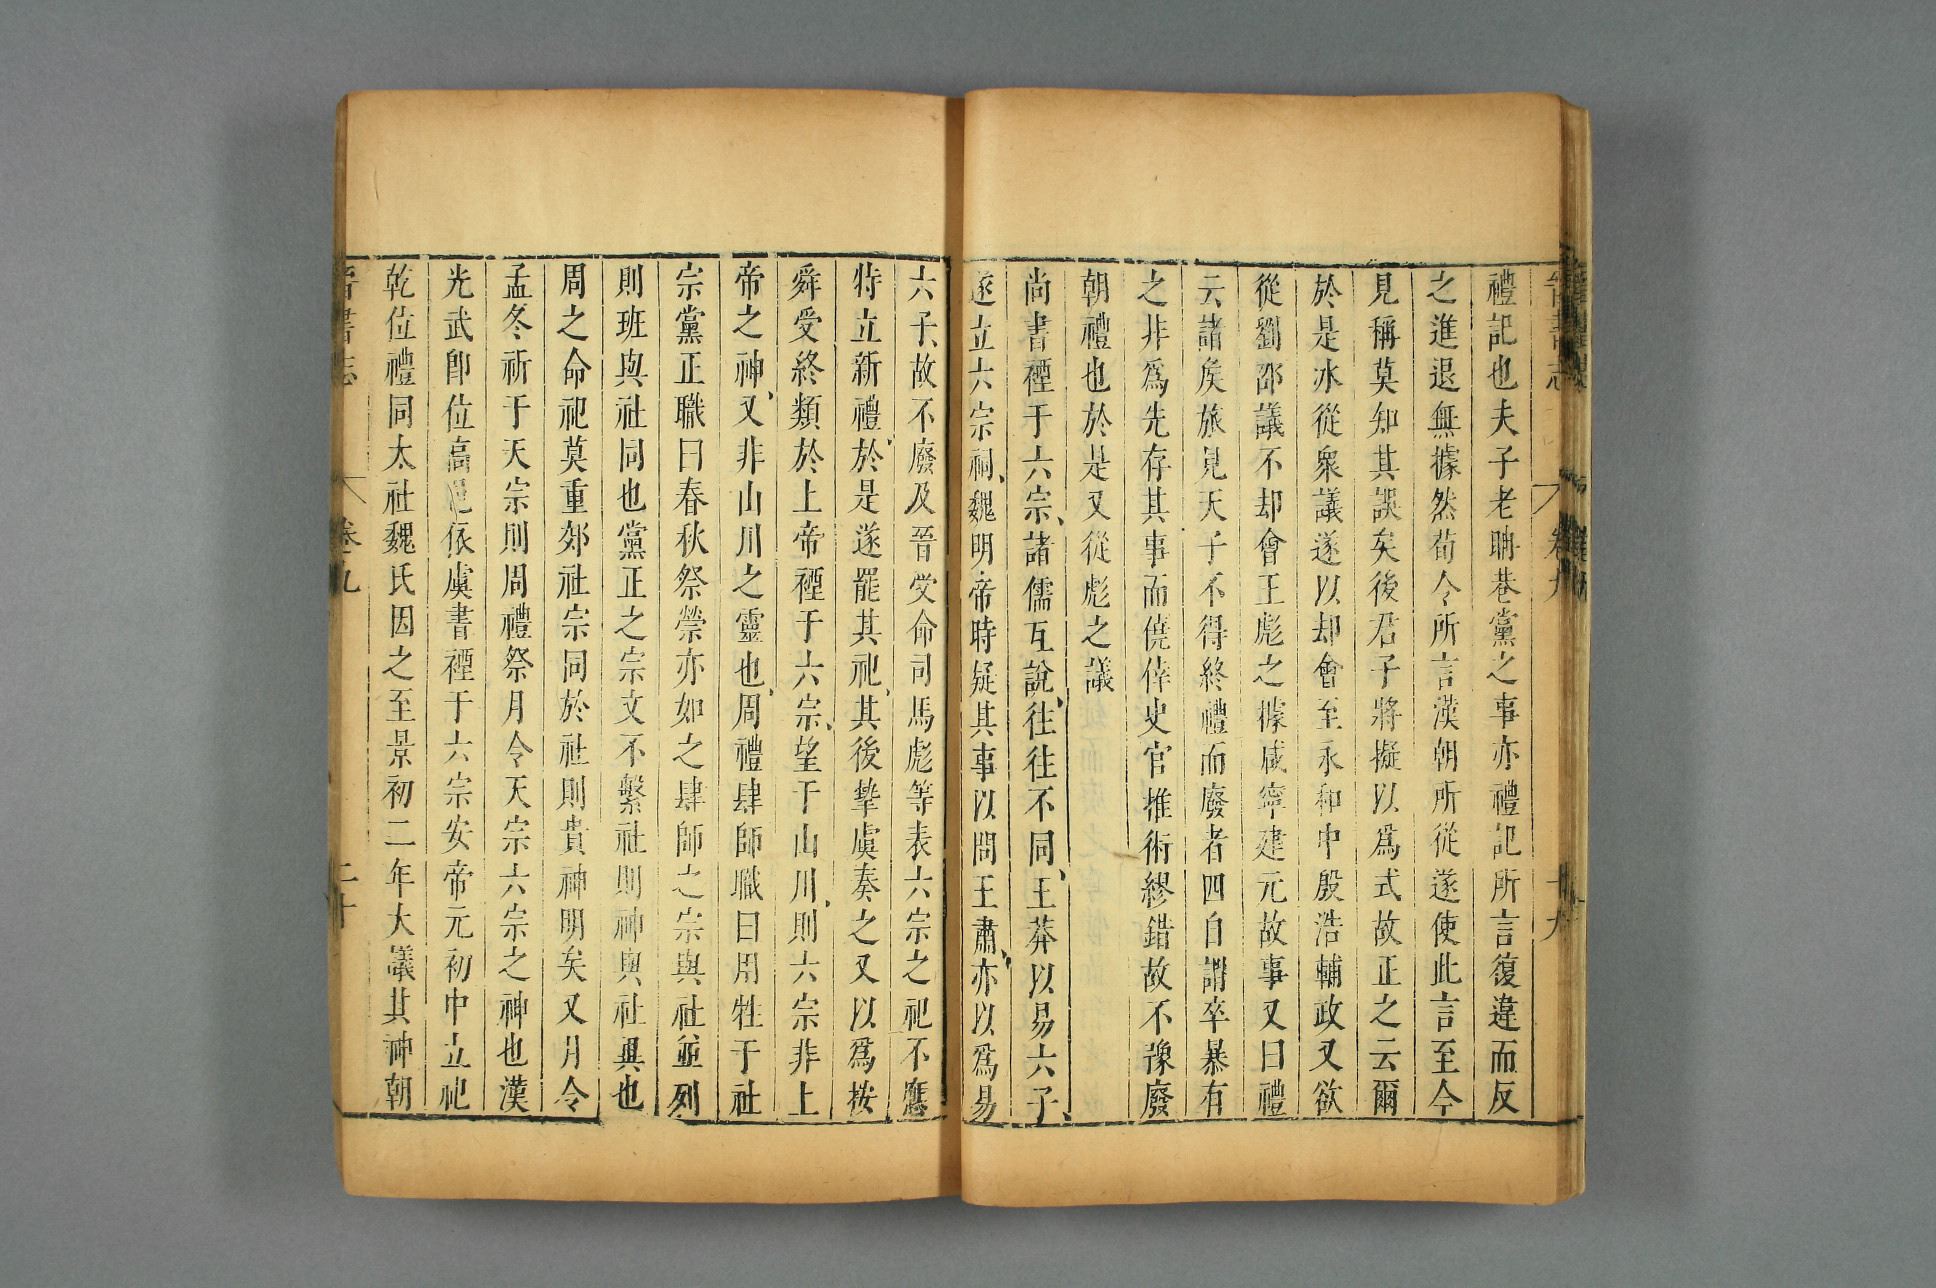 禮記也夫子老聃巷黨之事亦禮記所言復違而反
之進退無據然荀令所言漢朝所從遂使此言至今
見稱莫知其誤矣後君子將擬以爲式故正之云爾
於是冰從衆議遂以却會至永和中殷浩輔政又欲
從劉邵議不却會王彪之據咸寧建元故事又曰禮
云諸矦旅見天子不得終禮而廢者四自謂卒暴有
之非爲先存其事而僥倖史官推術繆錯故不豫廢
朝禮也於是又從彪之議
尚書禋于六宗諸儒互說往往不同王莽以易六子
遂立六宗祠魏明帝時疑其事以問王肅亦以爲易
六子故不廢及晉受命司馬彪等表六宗之祀不應
特立新禮於是遂罷其祀其後摯虞奏之又以爲按
舜受終類於上帝禋于六宗望于山川則六宗非上
帝之神又非山川之靈也周禮肆師職曰用牲于社
宗黨正職曰春秋祭禜亦如之肆師之宗與社並列
則班與社同也黨正之宗文不繫社則神與社異也
周之命祀莫重郊社宗同於社則貴神明矣又月令
孟冬祈于天宗則周禮祭月令天宗六宗之神也漢
光武卽位高邑依虞書禋于六宗安帝元初中立祀
乾位禮同太社魏氏因之至景初二年大議其神朝
晉書志 卷九 二十